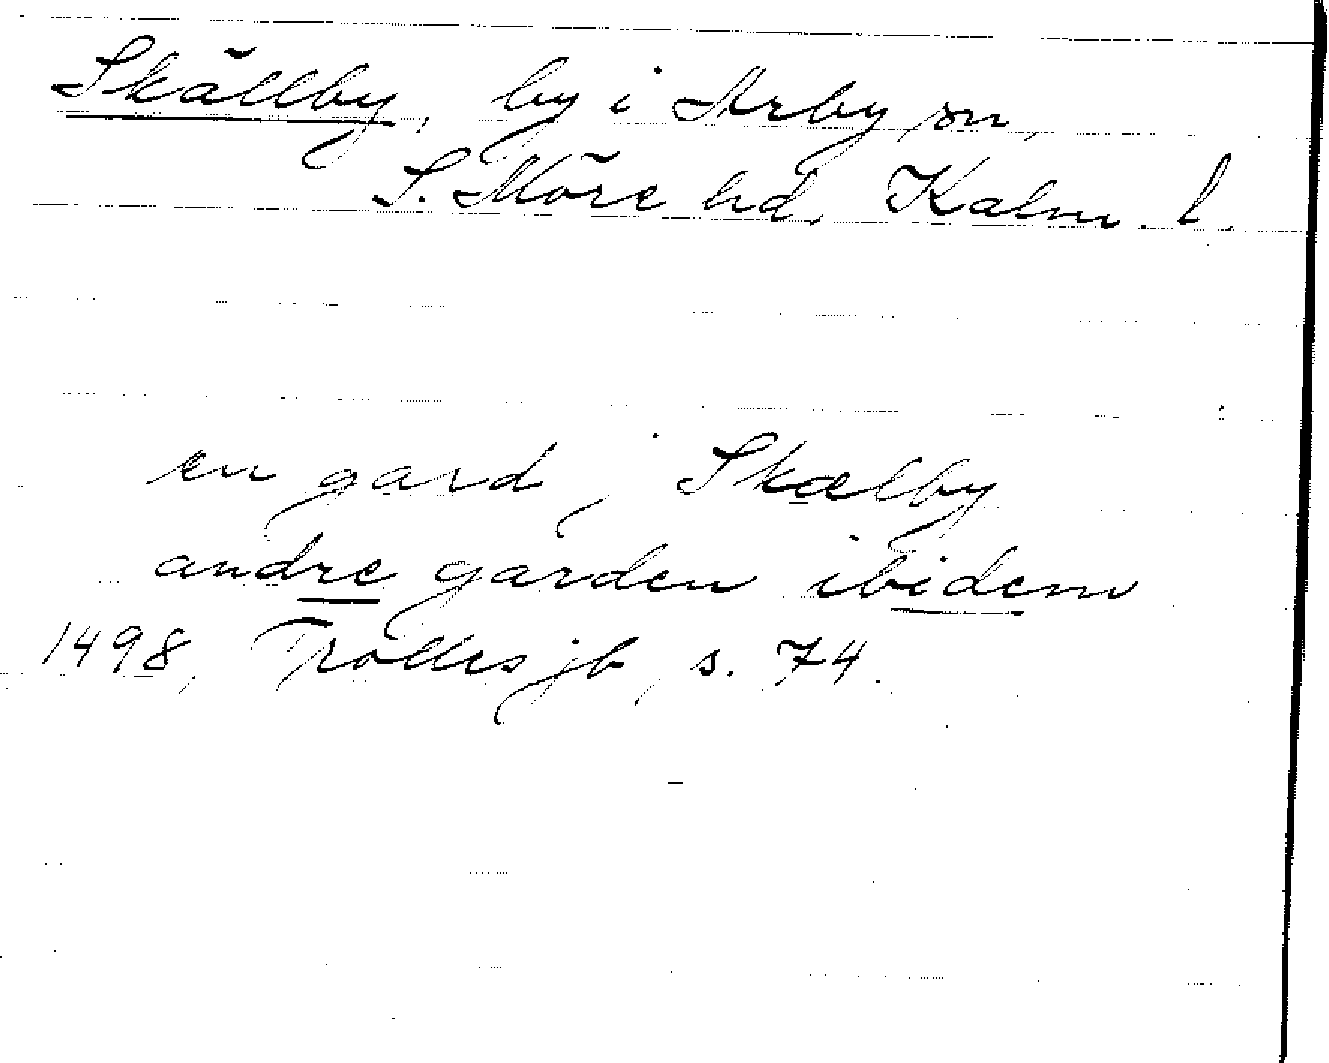 Skällby, by i Arby sn,
S. Möre hd, Kalm. l.
en gard i Skælby
andre garden ibidem
1498, Trolles jb, s. 74.